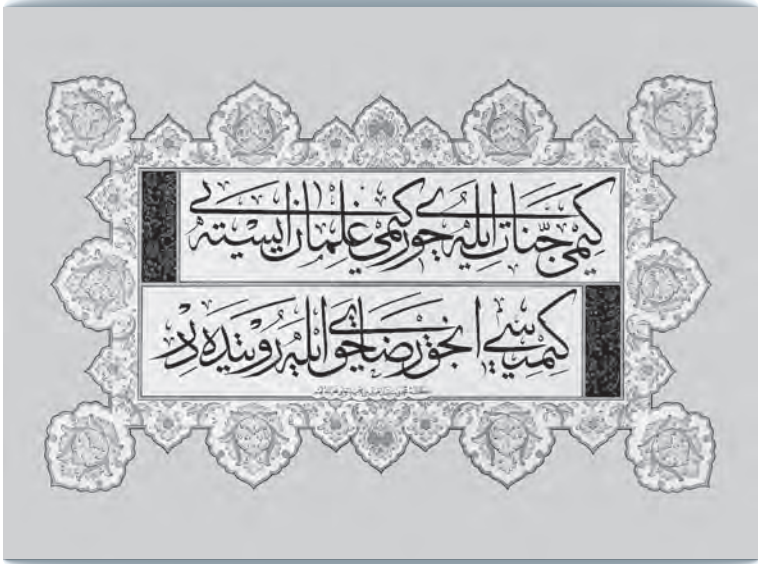 كیمی جنّات ایله حوری كیمی غلمان ایستر
كیمیسی انجق رضای حق ایله رؤیتده در